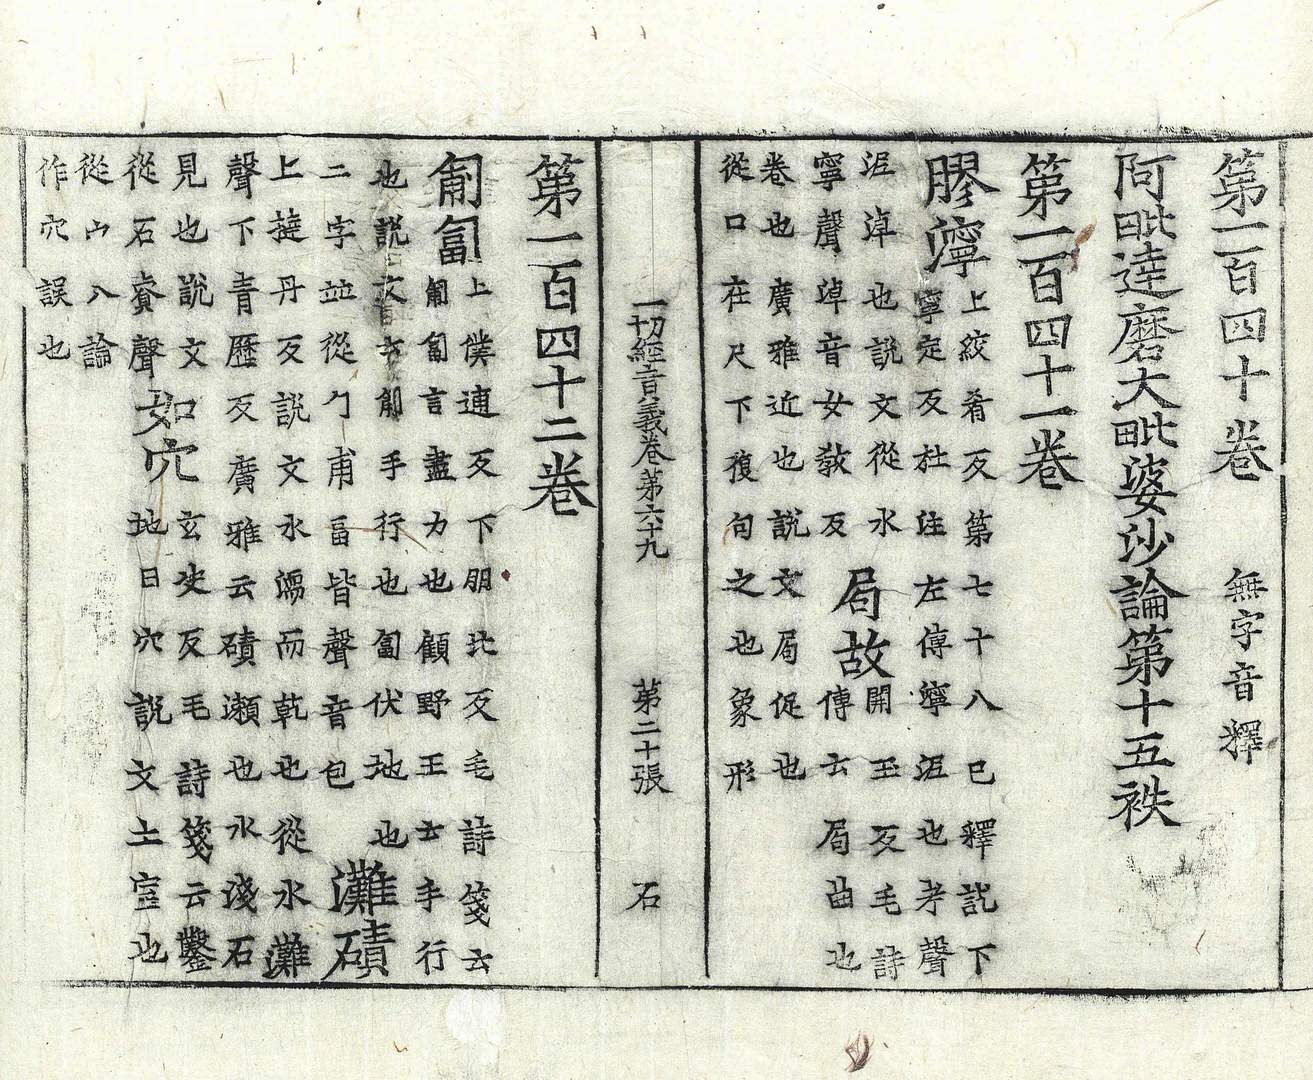 第一百四十卷 無字音釋
阿毗達磨大毗婆沙論第十五袟
第一百四十一卷
膠濘上絞肴反第七十八巳釋訖下
寧定反杜注左傳濘泥也考聲
泥淖也說文從水 局故開玉反毛詩
寧聲淖音女教反 傳云局曲也
卷也廣雅近也說文局促也
從口在尺下復句之也象形
一切經音義卷第六十九 第二十張 石
第一百四十二卷
匍匐上僕逋反下朋北反毛詩箋云
匍匐言盡力也顧野王云手行
也說文云匍手行也匐伏地也
二字並從勹甫畐皆聲音包 灘磧
上攤丹反說文水濡而乾也從水灘
聲下青歷反廣雅云磧瀨也水淺石
見也說文 玄决反毛詩箋云鑿
從石責聲 如穴 地曰穴說文土室也
從宀八論
作穴誤也